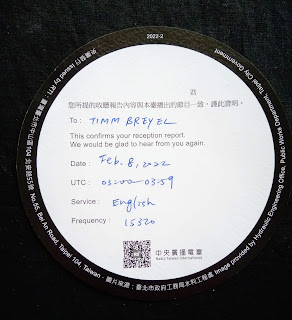 2022-2
君
您所提的收聽報告內容與本臺播出的節目一致，謹此證明。
To : TIMM BREYEL
This confirms your reception report.
We would be glad to hear from you again.
Date : Feb. 8, 2022
UTC : 03:00-03:59
Service : English
Frequency : 15320
中央廣播電臺
Radio Taiwan International
(Issued by RTI)
No.55, Bei An Road, Taipei 104, Taiwan
圖片來源：臺北市政府工務局水利工程處 Image provided by Hydraulic Engineering Office, Public Works Department, Taipei City Government